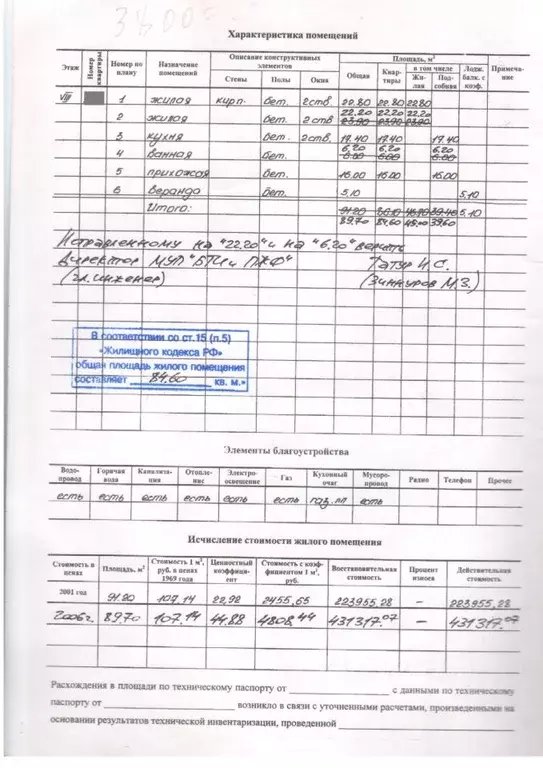 Характеристика помещений
Этаж | Номер квартиры | Номер по плану | Назначение помещений | Описание конструктивных элементов | Площадь, м²
Стены | Полы | Окна | Общая | Квартиры | в том числе | Лодж. балк. с коэф. | Примечание
Жилая | Подсобная
VIII | 1 | жилая | кирп. | бет. | 2ств | 22.80 | 22.80 | 22.80
22,20 22,20 22,20
2 | жилая | бет. | 2 ств | 23.90 | 23.90 | 23.90
3 | кухня | бет. | 2ств. | 17.40 | 17.40 | 17.40
6,20 6,20 6,20
4 | ванная | бет. | 6.00 | 6.00 | 6.00
5 | прихожая | бет. | 16.00 | 16.00 | 16.00
6 | веранда | бет. | 5,10 | 5,10
Итого: 91.20 | 86.10 | 46.70 | 39.40 | 5,10
89,70 84,60 45,00 39,60
Исправленному на "22,20" и на "6.20" верить
Директор МУП "БТИ и ПЖФ" Татур И.С.
(гл. инженер) (Зиннуров М.З.)
В соответствии со ст.15 (п.5)
«Жилищного кодекса РФ»
общая площадь жилого помещения
составляет 84.60 кв. м.»
Элементы благоустройства
Водопровод | Горячая вода | Канализация | Отопление | Электроосвещение | Газ | Кухонный очаг | Мусоропровод | Радио | Телефон | Прочее
есть | есть | есть | есть | есть | есть | газ.пл | есть
Исчисление стоимости жилого помещения
Стоимость в ценах | Площадь, м² | Стоимость 1 м², руб. в ценах 1969 года | Ценностный коэффициент | Стоимость с коэффициентом 1 м², руб. | Восстановительная стоимость | Процент износа | Действительная стоимость
2001 год | 91.20 | 107.14 | 22,92 | 2455,65 | 223955,28 | – | 223955,28
2006г. | 89,70 | 107.14 | 44.88 | 4808,44 | 431317.07 | – | 431317.07
Расхождения в площади по техническому паспорту от ____ с данными по техническому
паспорту от ____ возникло в связи с уточненными расчетами, произведенными на
основании результатов технической инвентаризации, проведенной ____